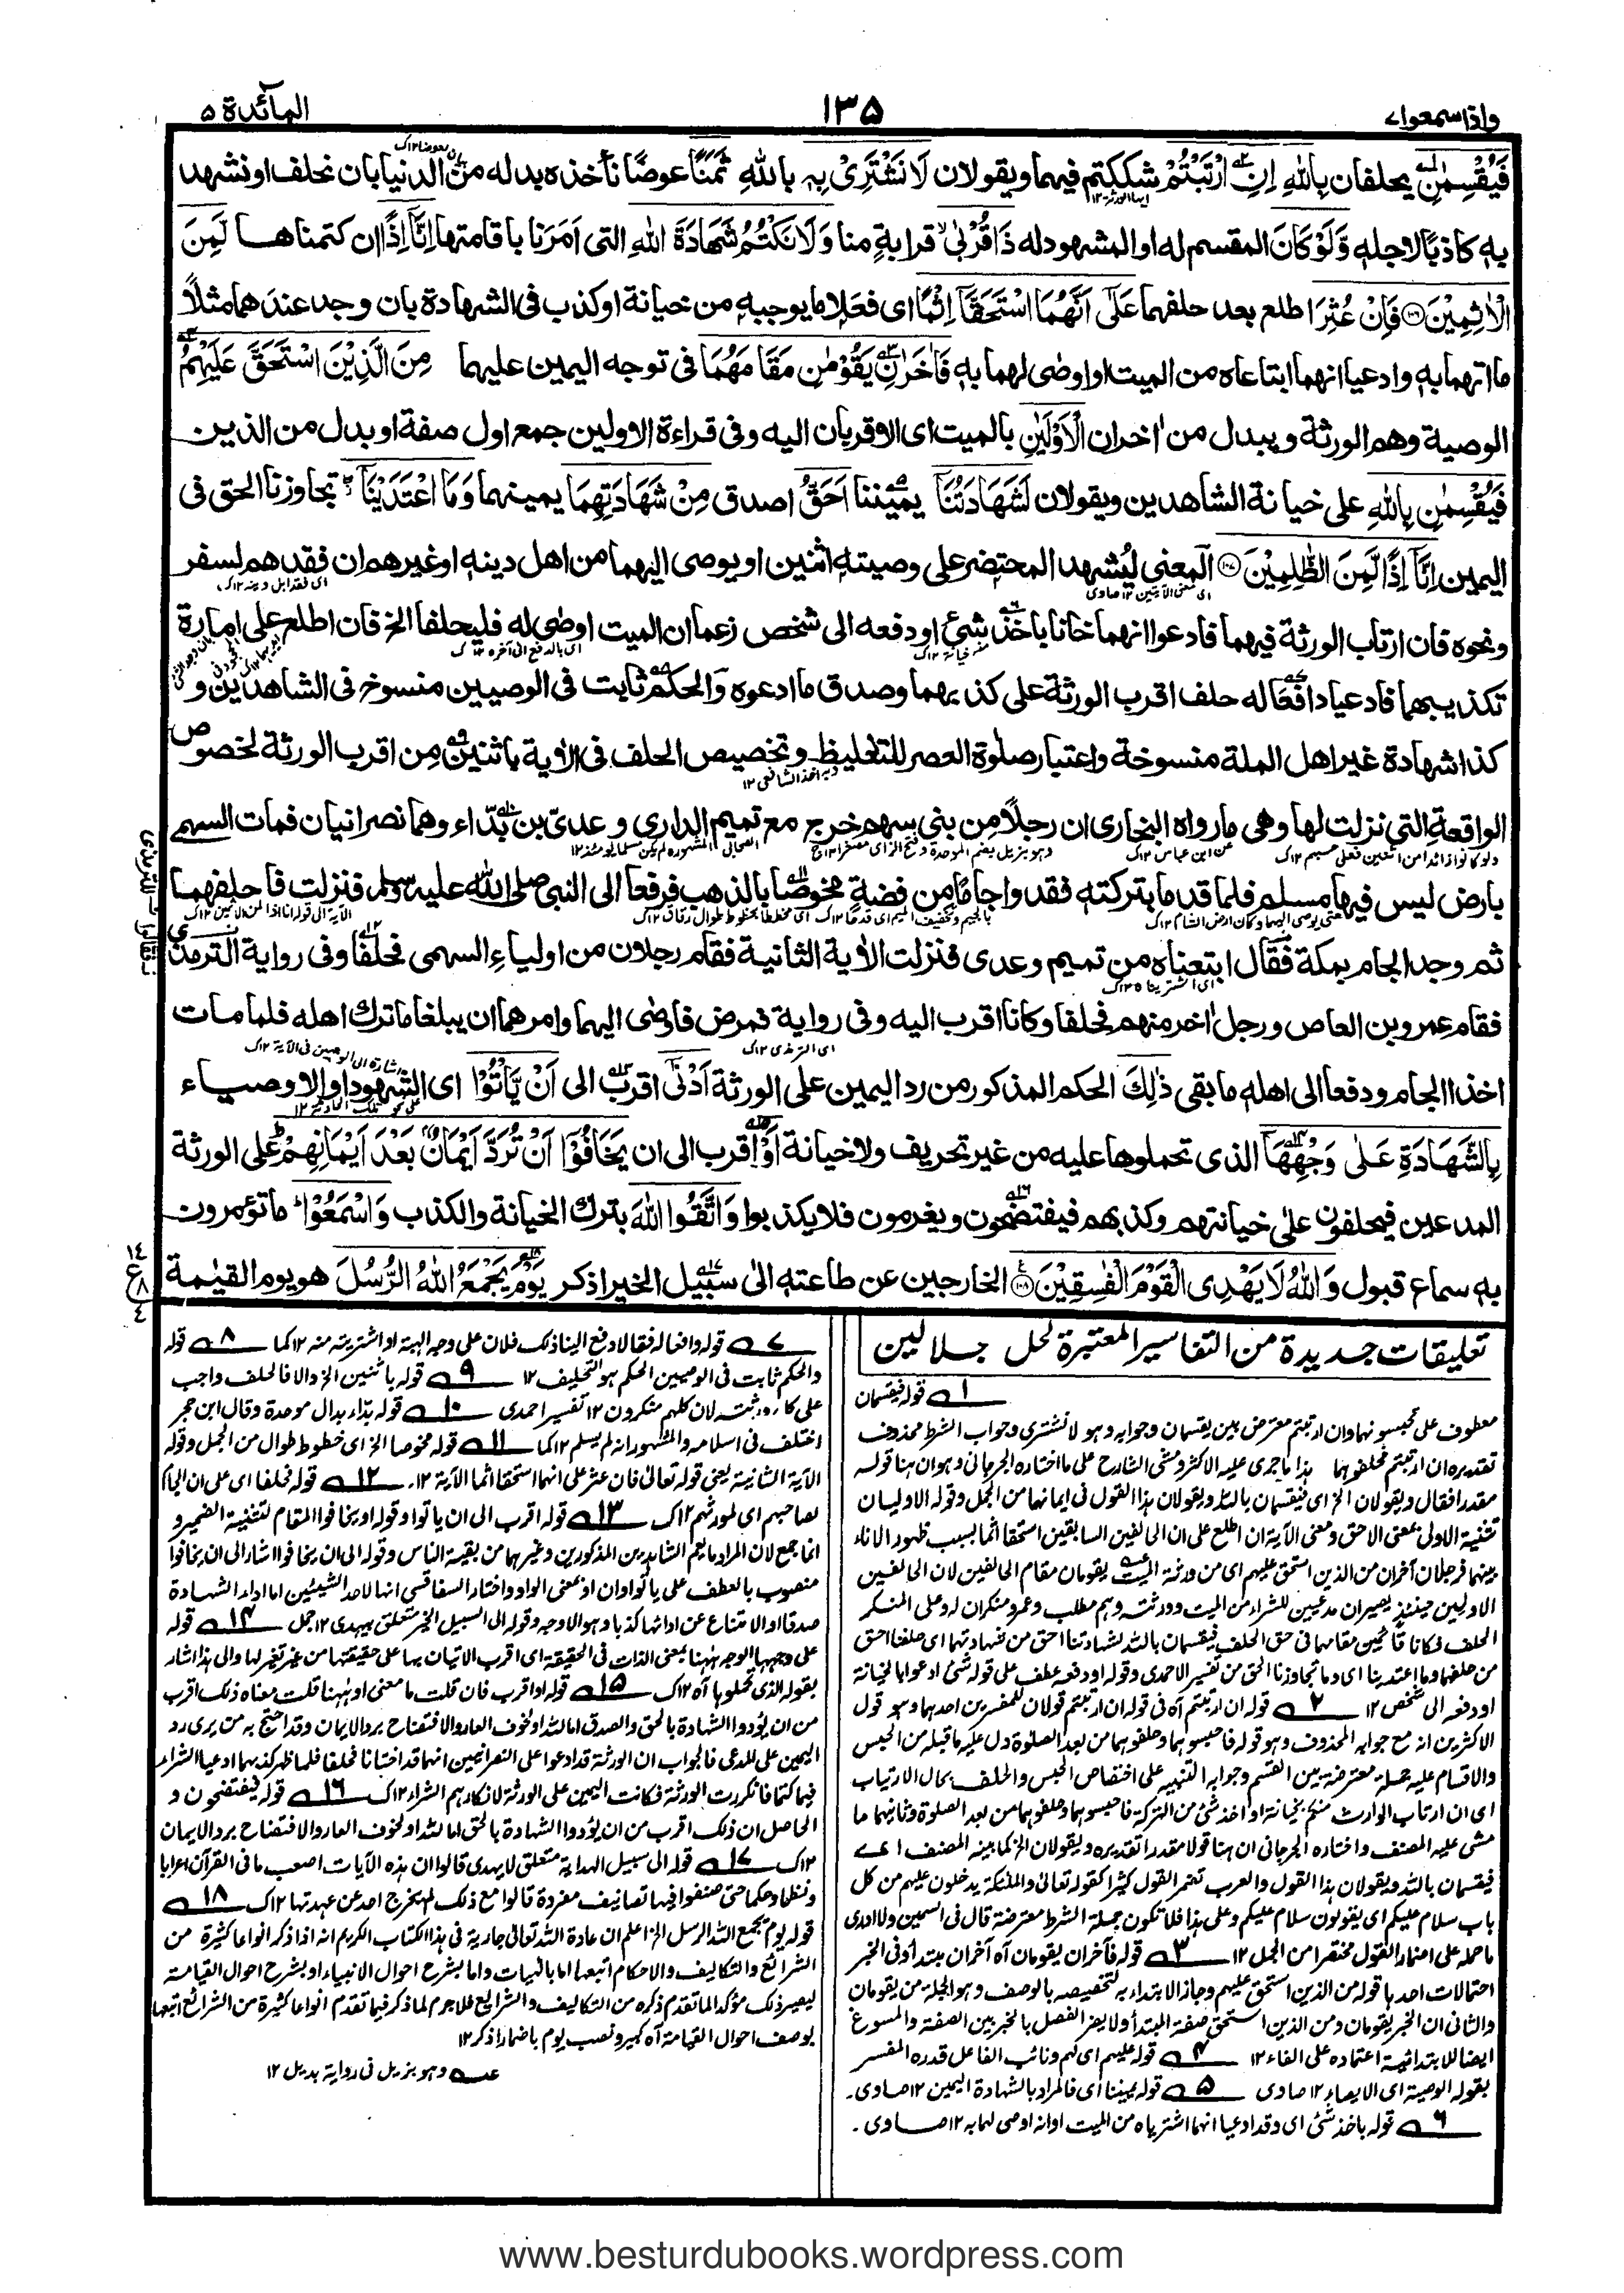 واذاسمعوا٧
١٣٥
المآئدة ٥
فَيُقْسِمٰنِ يحلفان بِاللّٰهِ اِنِ ارْتَبْتُمْ شككتم فيهما ويقولان لَا نَشْتَرِىْ بِهٖ بالله ثَمَنًا عوضًا نأخذه بدله من الدنيا بان نحلف او نشهد
به كاذبًا لاجله وَّلَوْ كَانَ المقسم له او المشهود له ذَا قُرْبٰى قرابةٍ منا وَلَا نَكْتُمُ شَهَادَةَ اللّٰهِ التى اَمَرَنا باقامتها اِنَّآ اِذًا ان كتمناها لَّمِنَ
الْاٰثِمِيْنَ ۝ فَاِنْ عُثِرَ اطلع بعد حلفهما عَلٰٓى اَنَّهُمَا اسْتَحَقَّآ اِثْمًا اى فعلا ما يوجبه من خيانة او كذب فى الشهادة بان وجد عندهما مثلًا
ما اتهما به وادعيا انهما ابتاعاه من الميت او اوصٰى لهما به فَاٰخَرٰنِ يَقُوْمٰنِ مَقَامَهُمَا فى توجه اليمين عليهما مِنَ الَّذِيْنَ اسْتَحَقَّ عَلَيْهِمُ
الوصية وهم الورثة ويبدل من اٰخران الْاَوْلَيٰنِ بالميت اى الاقربان اليه وفى قراءة الاولين جمع اول صفة او بدل من الذين
فَيُقْسِمٰنِ بِاللّٰهِ على خيانة الشاهدين ويقولان لَشَهَادَتُنَآ يميننا اَحَقُّ اصدق مِنْ شَهَادَتِهِمَا يمينهما وَمَا اعْتَدَيْنَآ تجاوزنا الحق فى
اليمين اِنَّآ اِذًا لَّمِنَ الظّٰلِمِيْنَ ۝ المعنى ليُشهد المحتضر على وصيته اثنين او يوصى اليهما من اهل دينه او غيرهم ان فقدهم لسفر
ونحوه فان ارتاب الورثة فيهما فادعوا انهما خانا باخذ شئ او دفعه الى شخص زعما ان الميت اوصٰى له فليحلفا الخ فان اطلع على امارة
تكذيبهما فادعيا دافعًا له حلف اقرب الورثة على كذبهما وصدق ما ادعوه والحكم ثابت فى الوصيين منسوخ فى الشاهدين و
كذا شهادة غير اهل الملة منسوخة واعتبار صلٰوة العصر للتغليظ وتخصيص الحلف فى الاٰية باثنين من اقرب الورثة لخصوص
الواقعة التى نزلت لها وهى ما رواه البخارى ان رجلًا من بنى سهم خرج مع تميم الدارى وعدى بن بدّاء وهما نصرانيان فمات السهمى
بارض ليس فيها مسلم فلما قدما بتركته فقدوا جامًا من فضة مخوصًا بالذهب فرفعا الى النبى صلى الله عليه وسلم فنزلت فاحلفهما
ثم وجد الجام بمكة فقال ابتعناه من تميم وعدى فنزلت الاٰية الثانية فقام رجلان من اولياء السهمى فحلفا وفى رواية الترمذى
فقام عمرو بن العاص ورجل اٰخر منهم فحلفا وكانا اقرب اليه وفى رواية فمرض فاوصٰى اليهما وامرهما ان يبلغا ما ترك اهله فلما مات
اخذا الجام ودفعا الى اهله ما بقى ذٰلِكَ الحكم المذكور من رد اليمين على الورثة اَدْنٰٓى اقرب الى اَنْ يَّاْتُوْا اى الشهود او الاوصياء
بِالشَّهَادَةِ عَلٰى وَجْهِهَآ الذى تحملوها عليه من غير تحريف ولا خيانة اَوْ اقرب الى ان يَخَافُوْٓا اَنْ تُرَدَّ اَيْمَانٌۢ بَعْدَ اَيْمَانِهِمْ على الورثة
المدعين فيحلفون على خيانتهم وكذبهم فيفتضحون ويغرمون فلا يكذبوا وَاتَّقُوا اللّٰهَ بترك الخيانة والكذب وَاسْمَعُوْا ما تؤمرون
به سماع قبول وَاللّٰهُ لَا يَهْدِى الْقَوْمَ الْفٰسِقِيْنَ ۝ الخارجين عن طاعته الى سبيل الخير اذكر يَوْمَ يَجْمَعُ اللّٰهُ الرُّسُلَ هو يوم القيٰمة
تعليقات جديدة من التفاسير المعتبرة لحل جلالين
١ قوله فيقسمان
معطوف على تحبسونهما وان ارتبتم معترض بين يقسمان وجوابه وهو لا نشترى وجواب الشرط محذوف
تقديره ان ارتبتم فحلفوهما هذا ما جرى عليه الاكثر ومشى الشارح على ما اختاره الجرجانى وهو ان هنا قوله
مقدرا فقال ويقولان الخ اى فيقسمان بالله ويقولان هذا القول فى ايمانهما من الجمل وقوله الاوليان
تثنية الاولى بمعنى الاحق ومعنى الآية ان اطلع على ان الحالفين السابقين استحقا اثما بسبب ظهور الاناء
بينهما فرجلان آخران من الذين استحق عليهم اى من ورثة الميت يقومان مقام الحالفين لان الحالفين
الاولين حينئذ يصيران مدعيين للشراء من الميت وورثته وهم مطلب وعمرو منكران له وعلى المنكر
الحلف فكانا قائمين مقامهما فى حق الحلف فيقسمان بالله لشهادتنا احق من شهادتهما اى حلفنا احق
من حلفهما وما اعتدينا اى وما تجاوزنا الحق من تفسير الاحمدى وقوله او دفعه عطف على قوله شئ ادعوا بالخيانة
او دفعه الى شخص ١٢ ٢ قوله ان ارتبتم آه فى قوله ان ارتبتم قولان للمفسرين احدهما وهو قول
الاكثرين انه مع جوابه المحذوف وهو قوله فاحبسوهما وحلفوهما من بعد الصلٰوة دل عليه ما قبله من الحبس
والاقسام عليه جملة معترضة بين القسم وجوابه التنبيه على اختصاص الحبس والحلف بحال الارتياب
اى ان ارتاب الوارث منكم بخيانة او اخذ شئ من التركة فاحبسوهما وحلفوهما من بعد الصلوة وثانيهما ما
مشى عليه المصنف واختاره الجرجانى ان هنا قولا مقدرا تقديره ويقولان الخ كما بينه المصنف اى
فيقسمان بالله ويقولان هذا القول والعرب تضمر القول كثيرا كقوله تعالى والملٰئكة يدخلون عليهم من كل
باب سلام عليكم اى يقولون سلام عليكم وعلى هذا فلا تكون جملة الشرط معترضة قال فى السمين ولا ادرى
ما حمله على اضمار القول مختصرا من الجمل ١٢ ٣ قوله فآخران يقومان آه آخران مبتدأ وفى الخبر
احتمالات احدها قوله من الذين استحق عليهم وجاز الابتداء به لتخصيصه بالوصف وهو الجملة من يقومان
والثانى ان الخبر يقومان ومن الذين استحق صفة المبتدأ ولا يضر الفصل بالخبر بين الصفة والمسوغ
ايضا للابتدائية اعتماده على الفاء ١٢ ٤ قوله عليهم اى لهم ونائب الفاعل قدره المفسر
بقوله الوصية اى الايصاء ١٢ صاوى ٥ قوله يميننا اى فالمراد بالشهادة اليمين ١٢ صاوى۔
٦ قوله باخذ شئ اى وقد ادعيا انهما اشترياه من الميت او انه اوصى لهما به ١٢ صاوى۔
٧ قوله دافعا له فقالا دفع الينا ذلك فلان على وجه الهبة او اشتريته منه ١٢ كما ٨ قوله
والحكم ثابت فى الوصيين الحكم هو التحليف ١٢ ٩ قوله باثنين الخ والا فالحلف واجب
على كل ورثته لان كلهم منكرون ١٢ تفسير احمدى ١٠ قوله بدّاء بدال موحدة وقال ابن حجر
اختلف فى اسلامه والمشهور انه لم يسلم ١٢ كما ١١ قوله مخوصا الخ اى خطوط طوال من الجمل وقوله
الآية الثانية يعنى قوله تعالى فان عثر على انهما استحقا اثما الآية ١٢۔ ١٢ قوله فحلفا اى على ان الجام
لصاحبهم اى لمورثهم ١٢ ك ١٣ قوله اقرب الى ان ياتوا وقوله او يخافوا المقام لتثنية الضمير و
انما جمع لان المراد ما يعم الشاهدين المذكورين وغيرهما من بقية الناس وقوله الى ان يخافوا اشار الى ان يخافوا
منصوب بالعطف على ياتوا وان او بمعنى الواو واختار السفاقسى انها لاحد الشيئين اما اداء الشهادة
صدقا او الامتناع عن ادائها كذبا وهو الاوجه وقوله الى السبيل الخير متعلق بيهدى ١٢ جمل ١٤ قوله
على وجهها الوجه ههنا بمعنى الذات فى الحقيقة اى اقرب الاتيان بها على حقيقتها من غير تغير لها والى هذا اشار
بقوله الذى تحملوها آه ١٢ ك ١٥ قوله او اقرب فان قلت ما معنى او ههنا قلت معناه ذلك اقرب
من ان يؤدوا الشهادة بالحق والصدق اما لله او لخوف العار والافتضاح برد الايمان وقد احتج به من يرى رد
اليمين على المدعى فالجواب ان الورثة قد ادعوا على النصرانيين انهما قد اختانا فحلفا فلما ظهر كذبهما ادعيا الشراء
فيما كتما فانكرت الورثة فكانت اليمين على الورثة لانكارهم الشراء ١٢ ك ١٦ قوله فيفتضحون و
الحاصل ان ذلك اقرب من ان يؤدوا الشهادة بالحق اما لله او لخوف العار والافتضاح برد الايمان
١٢ ك ١٧ قوله الى سبيل الهداية متعلق لا يهدى قالوا ان هذه الآيات اصعب ما فى القرآن اعرابا
ونظما وحكما حتى صنفوا فيها تصانيف مفردة قالوا مع ذلك لم يخرج احد عن عهدتها ١٢ ك ١٨
قوله يوم يجمع الله الرسل الخ اعلم ان عادة الله تعالى جارية فى هذا الكتاب الكريم انه اذا ذكر انواعا كثيرة من
الشرائع والتكاليف والاحكام اتبعها اما بالٰهيات واما بشرح احوال الانبياء او بشرح احوال القيامة
ليصير ذلك مؤكدا لما تقدم ذكره من التكاليف والشرايع فلا جرم لما ذكر فيما تقدم انواعا كثيرة من الشرائع اتبعها
بوصف احوال القيامة آه كبير ونصب يوم باضمار اذكر ١٢
عــه وهو بزيل فى رواية بديل ١٢
www.besturdubooks.wordpress.com